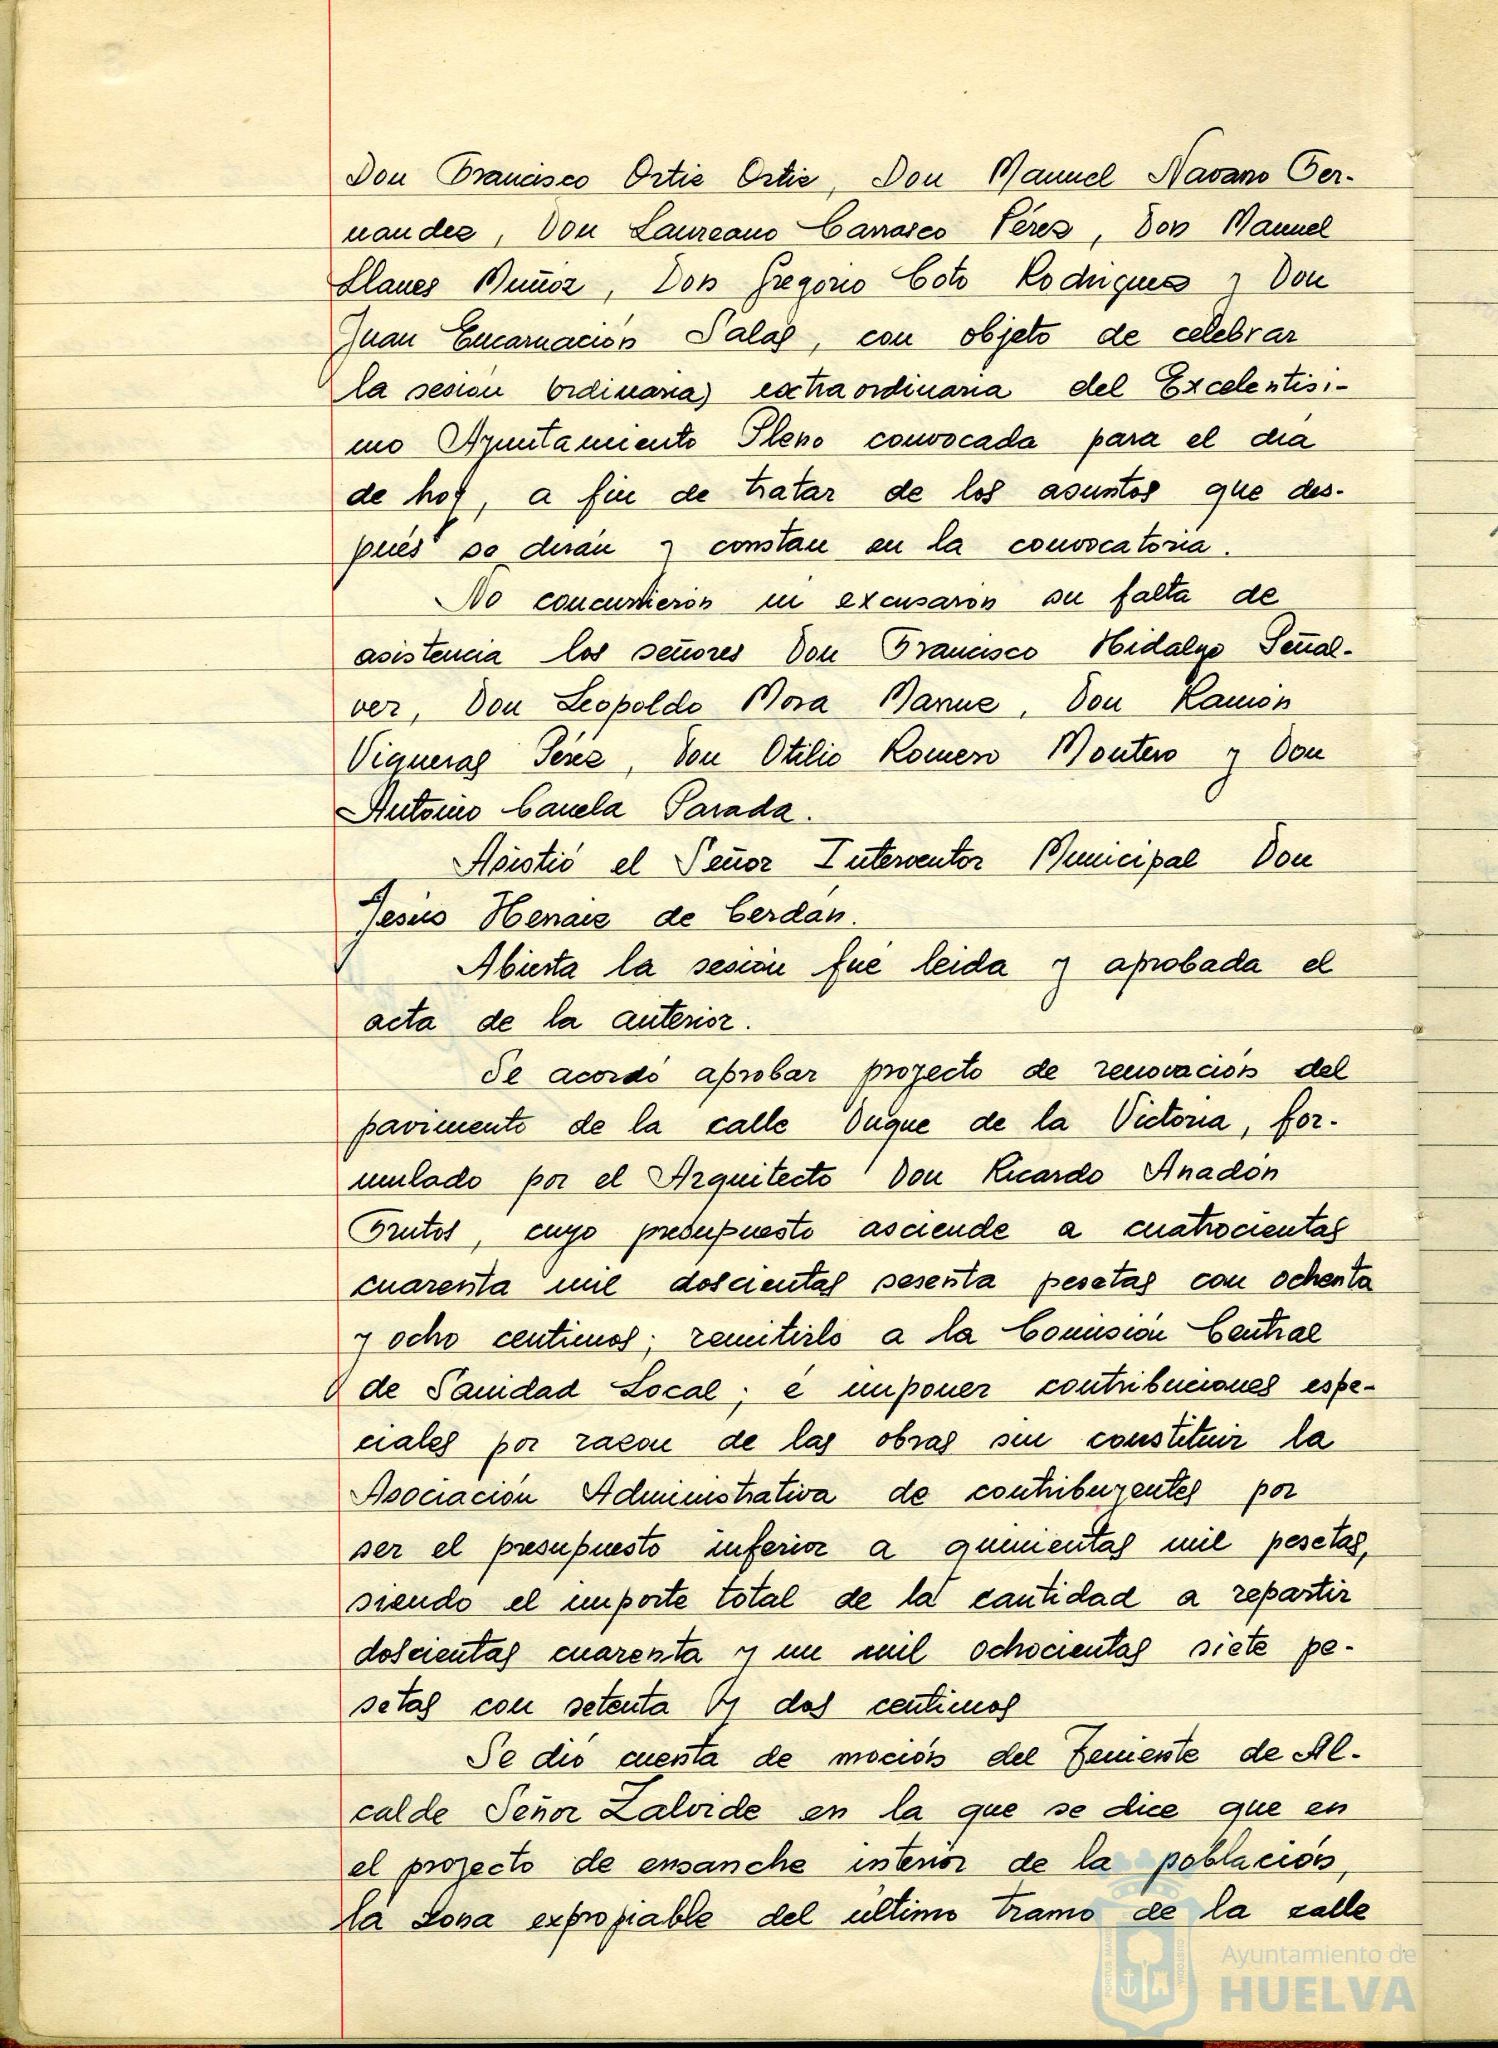 Don Francisco Ortiz Ortiz, Don Manuel Navarro Fer-
nandez, Don Laureano Carrasco Pérez, Don Manuel
Llanes Muñoz, Don Gregorio Coto Rodriguez y Don
Juan Encarnación Salas, con objeto de celebrar
la sesión (ordinaria) extraordinaria del Excelentisi-
mo Ayuntamiento Pleno convocada para el dia
de hoy, a fin de tratar de los asuntos que des-
pués se dirán y constan en la convocatoria.
No concurrieron ni excusaron su falta de
asistencia los señores Don Francisco Hidalgo Peñal-
ver, Don Leopoldo Mora Manue, Don Ramón
Vigueras Pérez, Don Otilio Romero Montero y Don
Antonio Canela Parada.
Asistió el Señor Interventor Municipal Don
Jesús Henaiz de Cerdán.
Abierta la sesión fué leida y aprobada el
acta de la anterior.
Se acordó aprobar proyecto de renovación del
pavimento de la calle Duque de la Victoria, for-
mulado por el Arquitecto Don Ricardo Anadón
Frutos, cuyo presupuesto asciende a cuatrocientas
cuarenta mil doscientas sesenta pesetas con ochenta
y ocho centimos; remitirlo a la Comisión Central
de Sanidad Local; é imponer contribuciones espe-
ciales por razon de las obras sin constituir la
Asociación Administrativa de contribuyentes por
ser el presupuesto inferior a quinientas mil pesetas,
siendo el importe total de la cantidad a repartir
doscientas cuarenta y un mil ochocientas siete pe-
setas con setenta y dos centimos
Se dió cuenta de moción del Teniente de Al-
calde Señor Zalvide en la que se dice que en
el proyecto de ensanche interior de la población,
la zona expropiable del último tramo de la calle
Ayuntamiento de
HUELVA